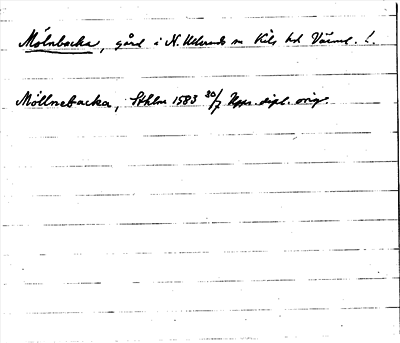 Mölnbacka, gård i N. Ulleruds sn Kils hd Värml. l.
Möllnebacka, Sthlm 1583 30/7 Upps. dipl. orig.